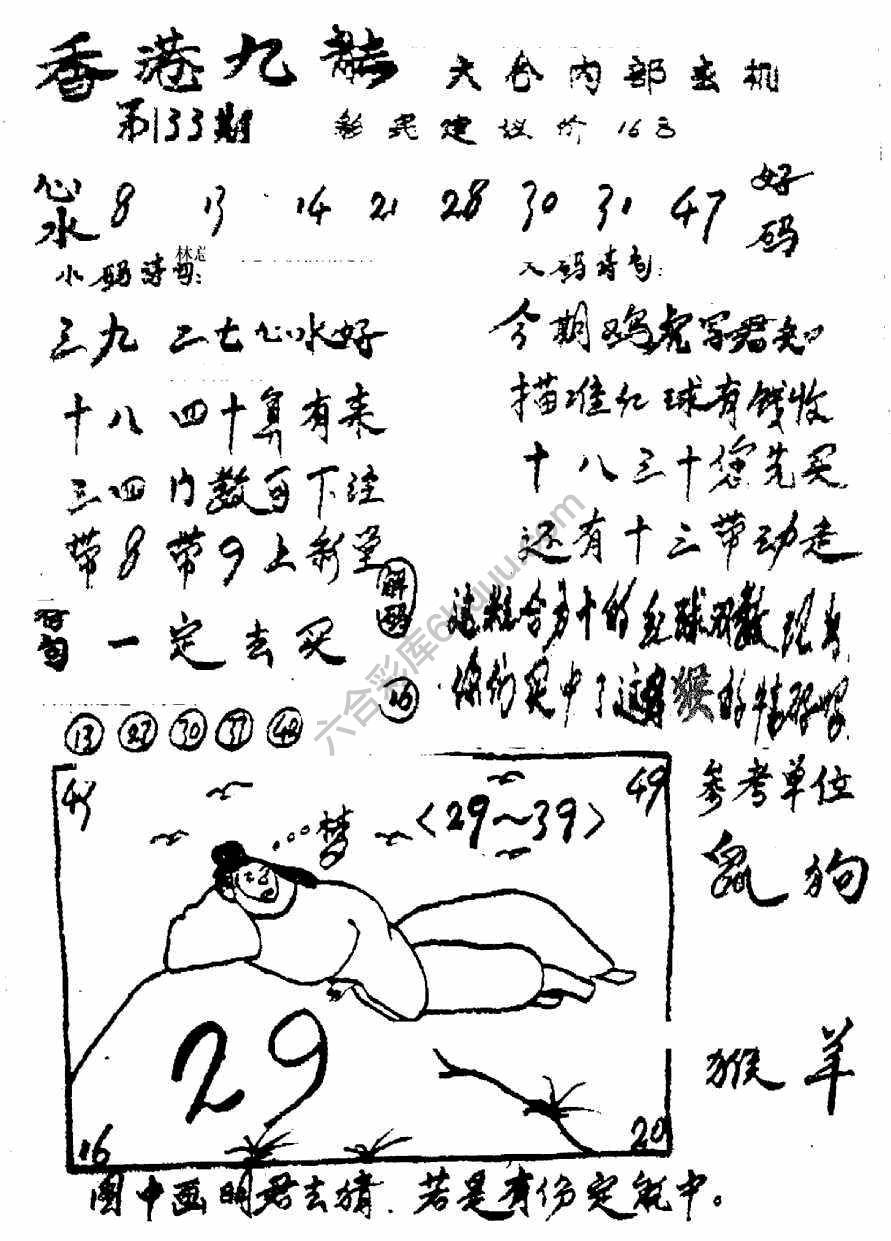 香港九龙 六合内部玄机
第133期 彩民建议价16元
心水 8 13 14 21 28 30 31 47 好码
小码诗句:
三九二七心水好
十八四十算有来
三四门数可下注
带8带9上彩堂
一句 一定去买
解码
16
13 27 30 37 48
诗句:
今期鸡虎写君知
描准红球有钱收
十八三十您先买
还有十三带动走
你们买中了这 猴的
参考单位
鼠 狗
猴 羊
49
...梦
<29~39>
29
16
20
图中画明君去猜.若是有份定能中。
六合彩库